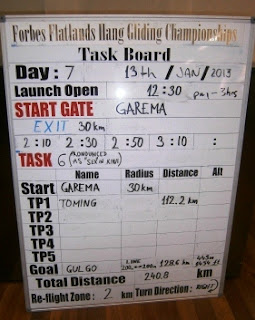 Forbes Flatlands Hang Gliding Championships
Task Board
Day: 7 13th / JAN / 2013
Launch Open 12:30
START GATE GAREMA
EXIT 30km
2:10 2:30 2:50 3:10 :
TASK 6 (PRONOUNCED AS "SEX" IN KIWI)
Name Radius Distance Alt
Start GAREMA 30km
TP1 TOMING 112.2 km
TP2
TP3
TP4
TP5
Goal GULGO LINE 128.6 km
Total Distance 240.8 km
Re-flight Zone: 2 km Turn Direction: RIGHT